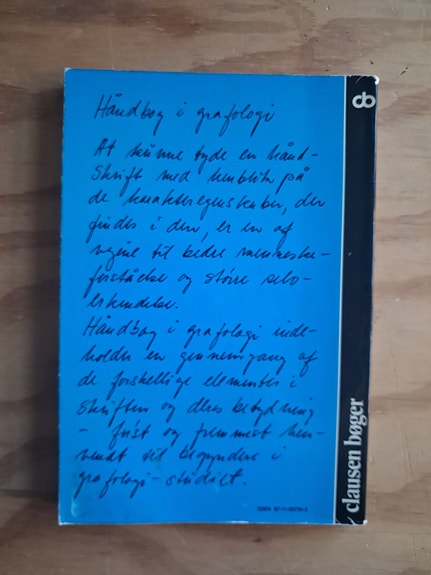 Håndbog i grafologi
At kunne tyde en hånd-
skrift med henblik på
de karakteregenskaber, der
findes i den, er en af
vejene til bedre menneske-
forståelse og større selv-
erkendelse.
Håndbog i grafologi inde-
holder en gennemgang af
de forskellige elementer i
skriften og deres betydning
- først og fremmest hen-
vendt til begyndere i
grafologi-studiet.
clausen bøger
cb